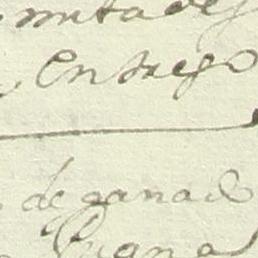 mitades
Entrego
de ganado